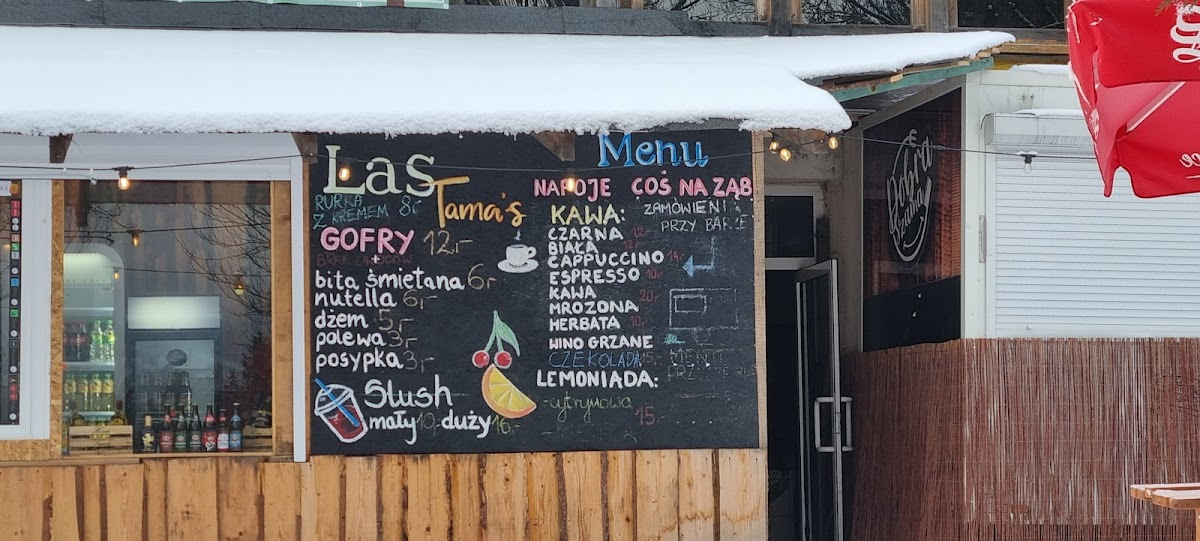 Las
Tama's
Menu
RURKA
Z KREMEM 8,-
GOFRY 12,-
+
bita śmietana 6,-
nutella 6,-
dżem 5,-
polewa 3,-
posypka 3,-
Slush
mały 10,- duży 16,-
NAPOJE
KAWA:
CZARNA 12,-
BIAŁA 12,-
CAPPUCCINO 14,-
ESPRESSO 10,-
KAWA
MROŻONA 20,-
HERBATA 10,-
WINO GRZANE
CZEKOLADA 15,-
LEMONIADA:
-cytrynowa 15,-
COŚ NA ZĄB
ZAMÓWIENIA
PRZY BARZE
MENU
Dobra
Szama